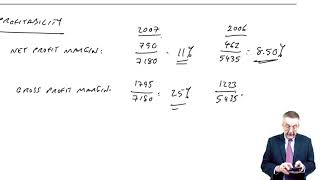 PROFITABILITY
2007 2006
NET PROFIT MARGIN: 790/7180 = 11% 462/5435 = 8.50%
GROSS PROFIT MARGIN: 1795/7180 = 25% 1223/5435 =